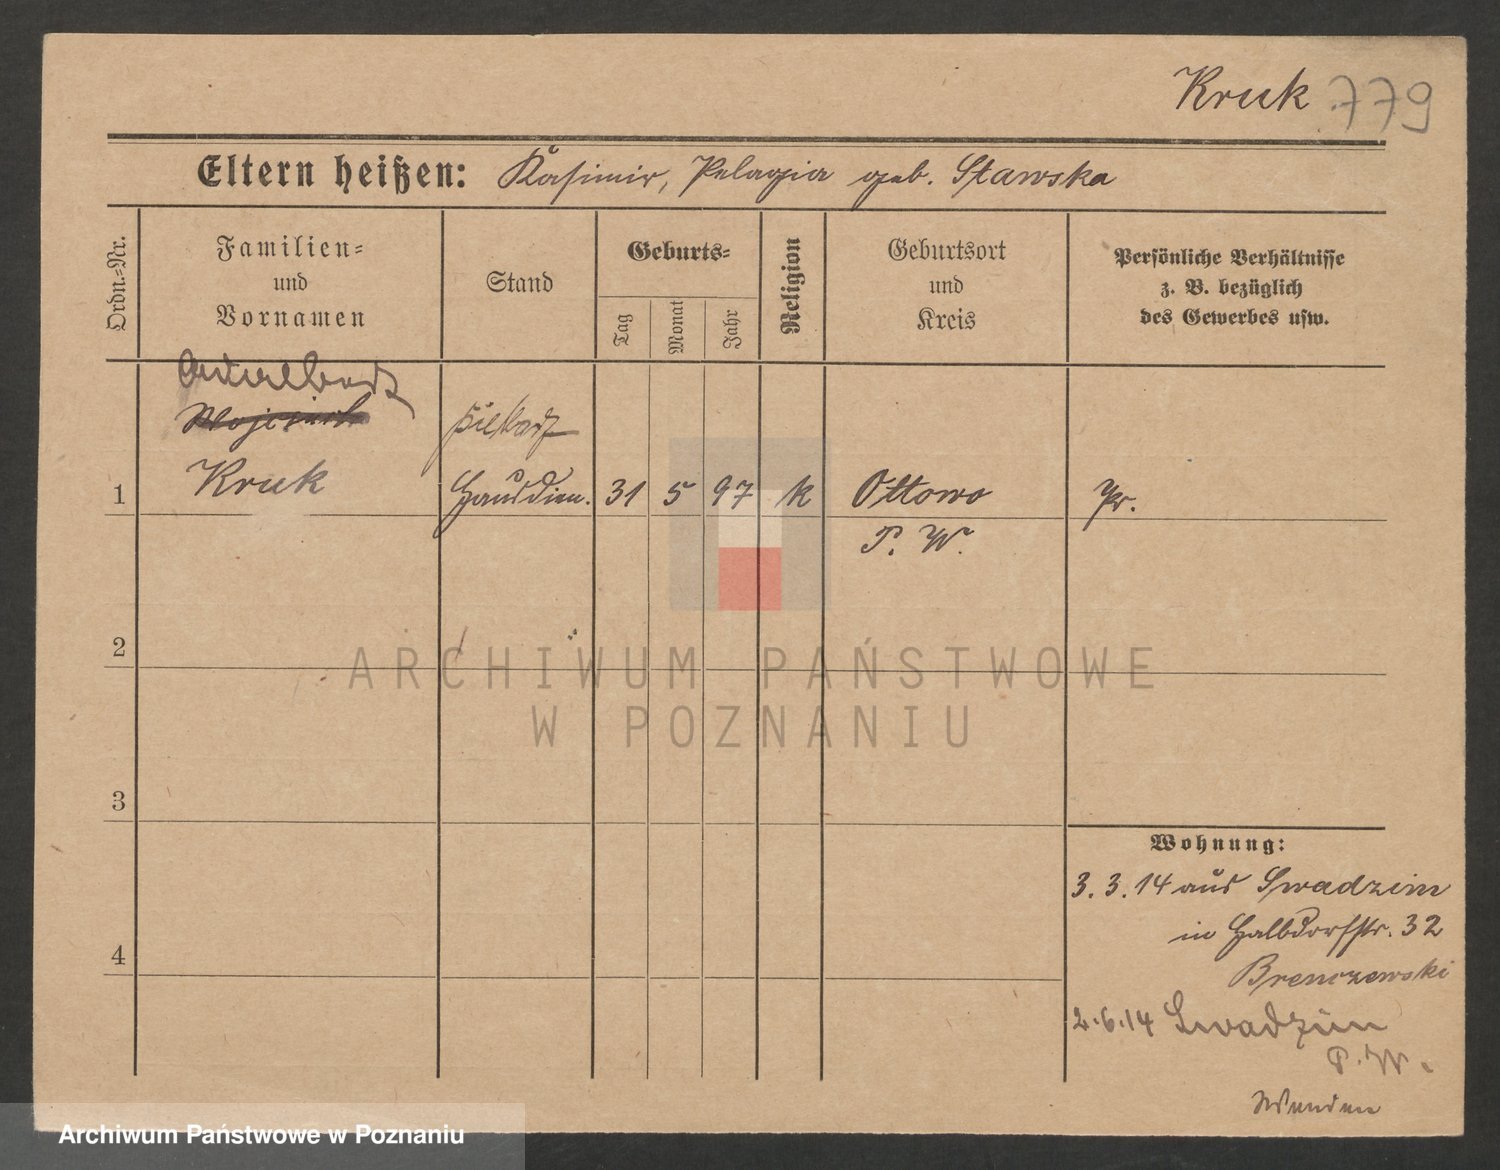 Kruk 779
Eltern heißen: Kasimir, Pelagia geb. Stawska
Ordn.=Nr.
Familien=
und
Vornamen
Stand
Geburts=
Tag
Monat
Jahr
Religion
Geburtsort
und
Kreis
Persönliche Verhältnisse
z. B. bezüglich
des Gewerbes usw.
Wojciech
piekarz
1 Kruk Hausdien. 31 5 97 k Ottowo Pr.
P. W.
2
ARCHIWUM PAŃSTWOWE
W POZNANIU
3
Wohnung:
3. 3. 14 aus Swadzim
in Halbdorfstr. 32
4
2. 6. 14 Swadzim
P. W.
Archiwum Państwowe w Poznaniu